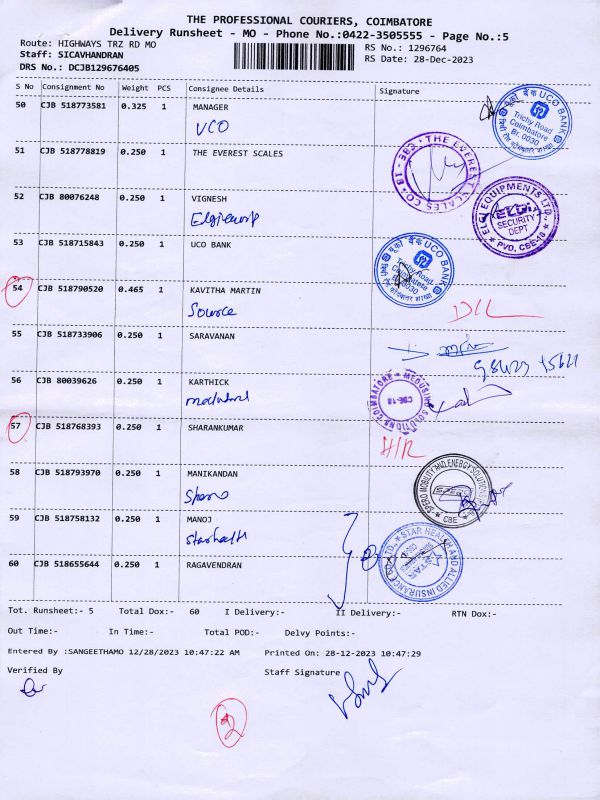 THE PROFESSIONAL COURIERS, COIMBATORE
Delivery Runsheet - MO - Phone No.:0422-3505555 - Page No.:5
Route: HIGHWAYS TRZ RD MO
RS No.: 1296764
Staff: SICAVHANDRAN
RS Date: 28-Dec-2023
DRS No.: DCJB129676405
S No Consignment No Weight PCS Consignee Details Signature
50 CJB 518773581 0.325 1 MANAGER
UCO
UCO BANK
यूको बैंक
Trichy Road
Coimbatore
Br. 0030
51 CJB 518778819 0.250 1 THE EVEREST SCALES
THE EVEREST SCALES CO. CBE - 18
52 CJB 80076248 0.250 1 VIGNESH
ELGI EQUIPMENTS LTD.
SECURITY
DEPT
PVD. CBE-18
53 CJB 518715843 0.250 1 UCO BANK
यूको बैंक UCO BANK
Trichy Road,
Coimbatore
0030
54 CJB 518790520 0.465 1 KAVITHA MARTIN
Source
D/L
55 CJB 518733906 0.250 1 SARAVANAN
56 CJB 80039626 0.250 1 KARTHICK
CBE-18
57 CJB 518768393 0.250 1 SHARANKUMAR
H/R
58 CJB 518793970 0.250 1 MANIKANDAN
Spero
SPERO MOBILITY AND ENERGY SOLUTIONS
CBE
59 CJB 518758132 0.250 1 MANOJ
Starhealth
STAR HEALTH AND ALLIED INSURANCE CO. LTD.
60 CJB 518655644 0.250 1 RAGAVENDRAN
Tot. Runsheet:- 5 Total Dox:- 60 I Delivery:- II Delivery:- RTN Dox:-
Out Time:- In Time:- Total POD:- Delvy Points:-
Entered By :SANGEETHAMO 12/28/2023 10:47:22 AM Printed On: 28-12-2023 10:47:29
Verified By Staff Signature
2